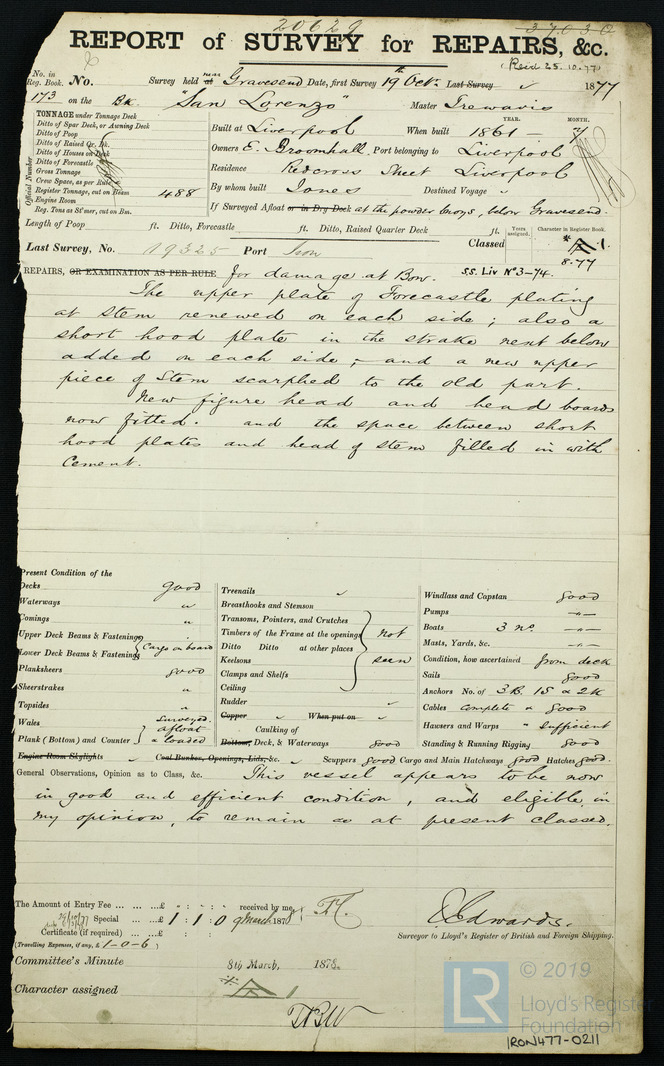 20629
37030
REPORT of SURVEY for REPAIRS, &c.
(Recd 25.10.77)
No. in Reg. Book. No. Survey held at near Gravesend Date, first Survey 19th Octr. Last Survey 1877
173 on the Bk. "San Lorenzo" Master Trewavis
TONNAGE under Tonnage Deck
Ditto of Spar Deck, or Awning Deck
Ditto of Poop
Ditto of Raised Qr. Dk.
Ditto of Houses on Deck
Ditto of Forecastle
Gross Tonnage
Crew Space, as per Rule
Register Tonnage, cut on Beam 488
Engine Room
Reg. Tons as St'mer, cut on Bm.
Official Number
YEAR. MONTH.
Built at Liverpool When built 1861 - 7
Owners E. Broomhall. Port belonging to Liverpool
Residence Redcross Street Liverpool
By whom built Jones Destined Voyage
If Surveyed Afloat or in Dry Dock at the powder buoys, below Gravesend.
Length of Poop ft. Ditto, Forecastle ft. Ditto, Raised Quarter Deck ft.
Years assigned. Character in Register Book.
Last Survey, No. 19325 Port Lon Classed A 1.
8.77
REPAIRS, OR EXAMINATION AS PER RULE for damage at Bow. S.S. Liv No 3-74.
The upper plate of Forecastle plating
at stem renewed on each side; also a
short hood plate in the strake next below
added on each side; and a new upper
piece of Stem scarphed to the old part.
New figure head and head boards
now fitted. and the space between short
hood plates and head of stem filled in with
cement.
Present Condition of the
Decks good
Waterways "
Comings "
Upper Deck Beams & Fastenings
Lower Deck Beams & Fastenings Cargo on board
Planksheers good
Sheerstrakes "
Topsides "
Wales
Plank (Bottom) and Counter Surveyed afloat & loaded
Engine Room Skylights Coal Bunker, Openings, Lids, &c.
Treenails
Breasthooks and Stemson
Transoms, Pointers, and Crutches
Timbers of the Frame at the openings not
Ditto Ditto at other places
Keelsons seen
Clamps and Shelfs
Ceiling
Rudder
Copper When put on
Caulking of
Bottom, Deck, & Waterways good
Scuppers good Cargo and Main Hatchways good Hatches good.
Windlass and Capstan good
Pumps "
Boats 3 no. "
Masts, Yards, &c. "
Condition, how ascertained from deck
Sails good
Anchors No. of 3 B. 1S & 2K
Cables complete & good
Hawsers and Warps " sufficient
Standing & Running Rigging good
General Observations, Opinion as to Class, &c. This vessel appears to be now
in good and efficient condition, and eligible, in
my opinion, to remain as at present classed.
The Amount of Entry Fee ... ... ...£ : : received by me,
Special ... ...£ 1 : 1 : 0 9 March 1878
Certificate (if required) ... ...£ : :
(Travelling Expenses, if any, £ 1-0-6)
Edwards.
Surveyor to Lloyd's Register of British and Foreign Shipping.
Committee's Minute 8th March, 1878.
Character assigned A 1
LR
© 2019
Lloyd's Register
Foundation
IRON477-0211